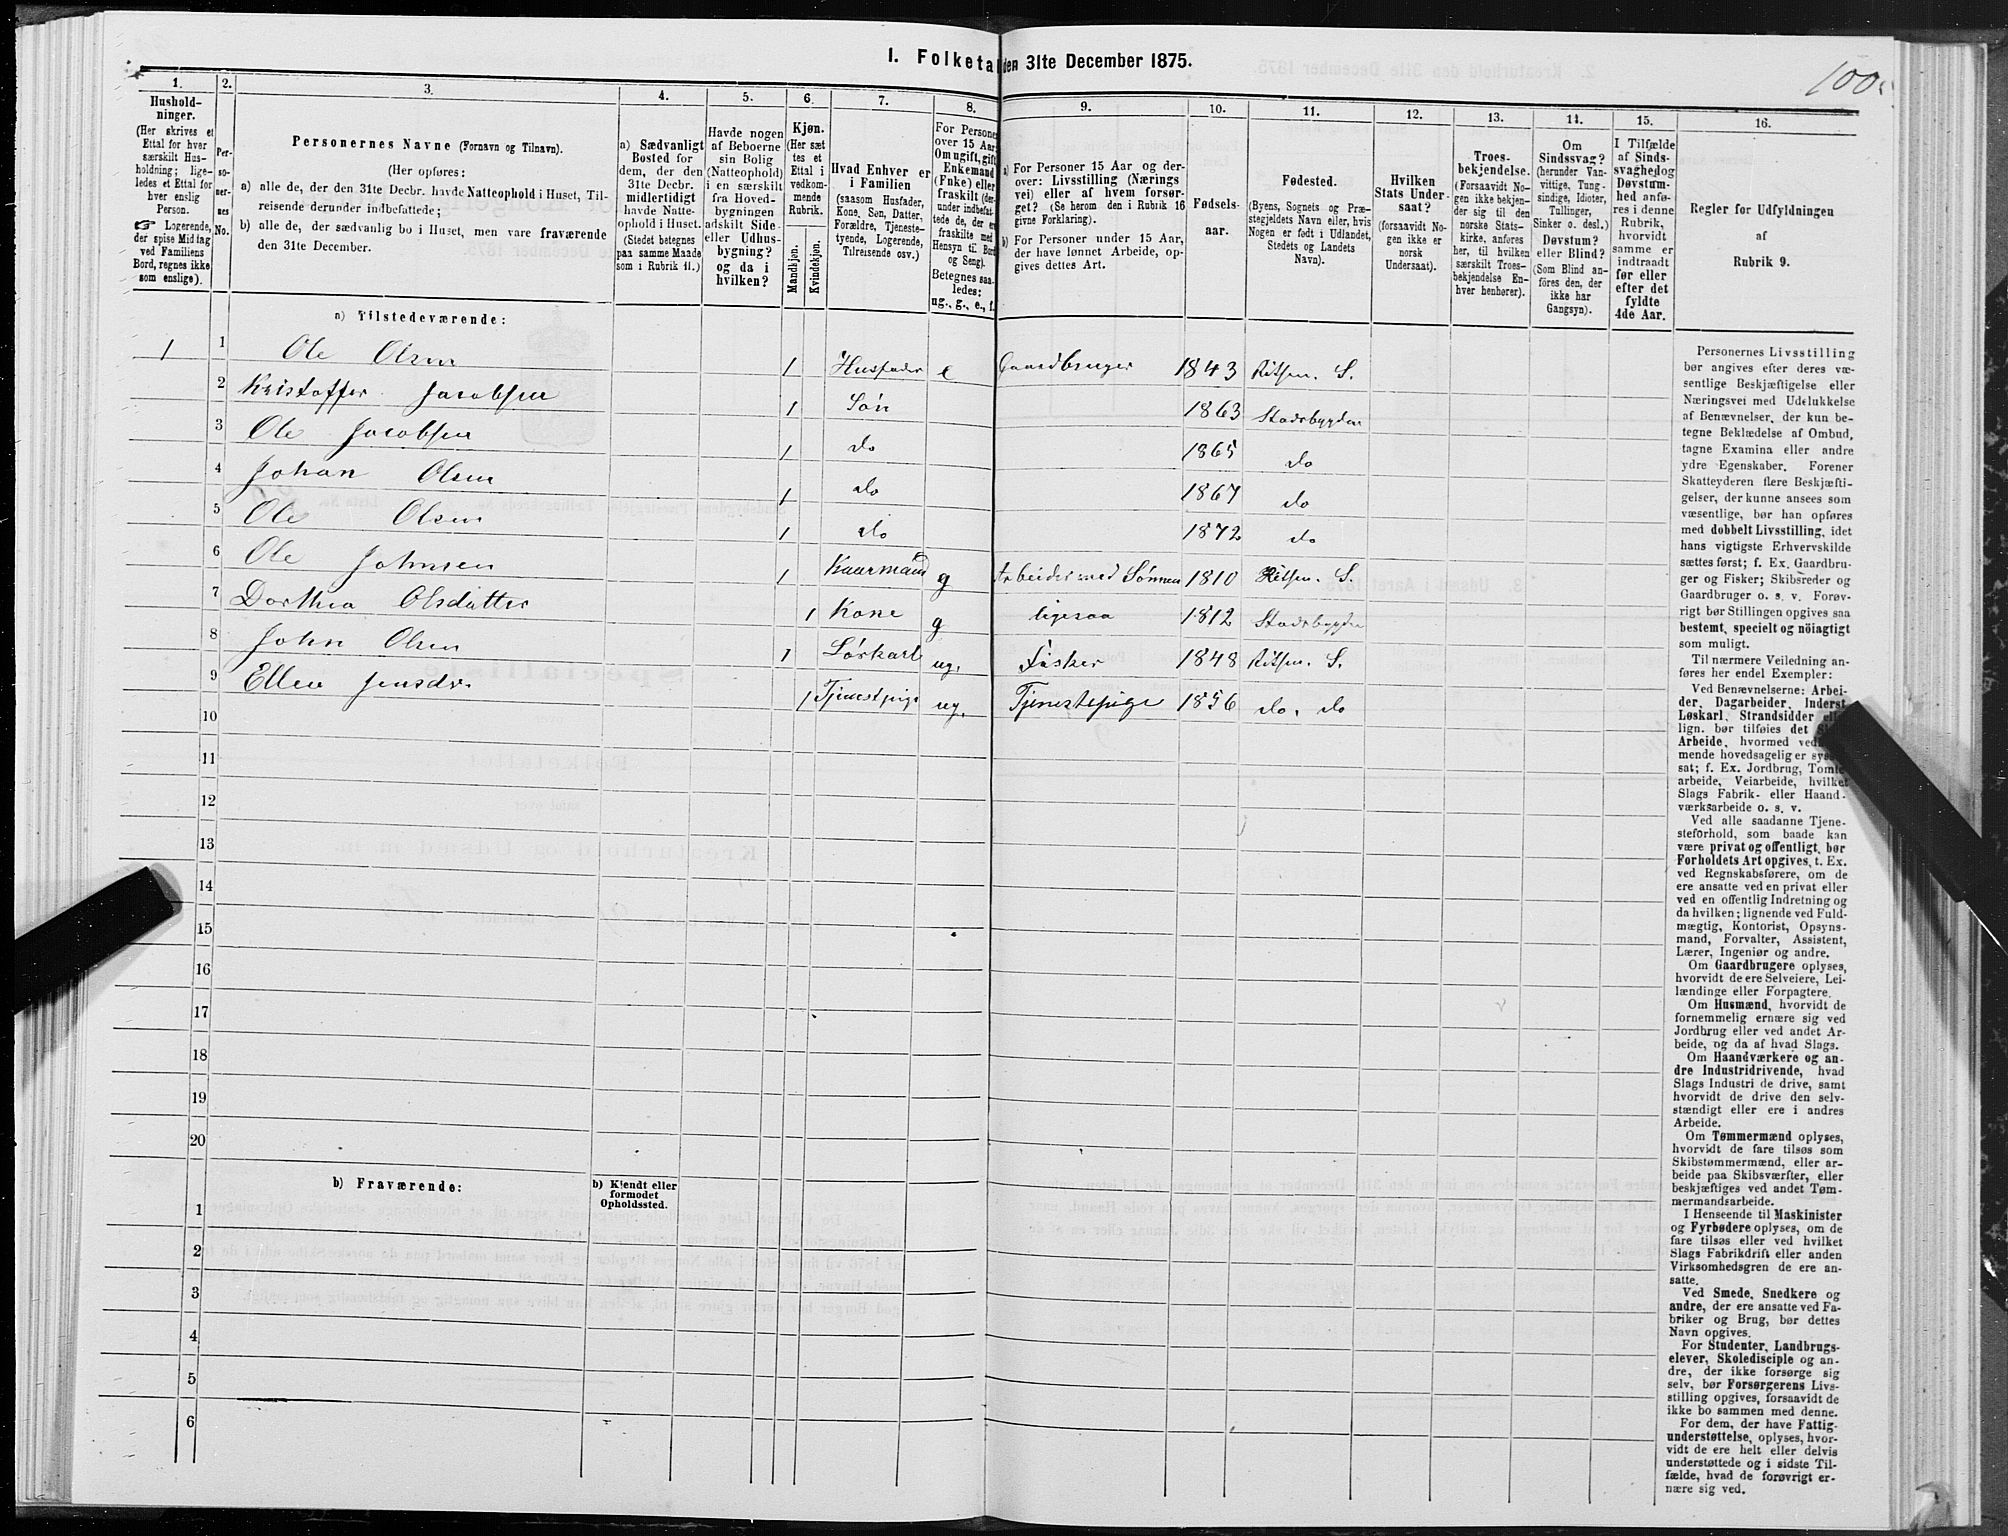 I. Folketal den 31te December 1875.
100.
1.
Hushold-
ninger.
(Her skrives et
Ettal for hver
særskilt Hus-
holdning; lige-
ledes et Ettal for
hver enslig
Person.
☞ Logerende,
der spise Middag
ved Familiens
Bord, regnes ikke
som enslige).
2.
Per-
so-
ner-
nes
No.
3.
Personernes Navne (Fornavn og Tilnavn).
(Her opføres:
a) alle de, der den 31te Decbr. havde Natteophold i Huset, Til-
reisende derunder indbefattede;
b) alle de, der sædvanlig bo i Huset, men vare fraværende
den 31te December.
4.
a) Sædvanligt
Bosted for
dem, der den
31te Decbr.
midlertidigt
havde Natte-
ophold i Huset.
(Stedet betegnes
paa samme Maade
som i Rubrik 11.)
5.
Havde nogen
af Beboerne
sin Bolig
(Natteophold)
i en særskilt
fra Hoved-
bygningen
adskilt Side-
eller Udhus-
bygning?
og da i
hvilken?
6.
Kjøn.
(Her sæt
tes et
Ettal i
vedkom-
mende
Rubrik.
Mandkjøn.
Kvindekjøn.
7.
Hvad Enhver er
i Familien
(saasom Husfader,
Kone, Søn, Datter,
Forældre, Tjeneste-
tyende, Logerende,
Tilreisende osv.)
8.
For Personer
over 15 Aar
Om ugift, gift,
Enkemand
(Enke) eller
fraskilt (der-
under indbefat-
tede de, der ere
fraskilte med
Hensyn til Bord
og Seng).
Betegnes saa-
ledes:
ug., g., e., f.
9.
a) For Personer 15 Aar og der-
over: Livsstilling (Nærings
vei) eller af hvem forsør-
get? (Se herom den i Rubrik 16
givne Forklaring).
b) For Personer under 15 Aar,
der have lønnet Arbeide, op-
gives dettes Art.
10.
Fødsels-
aar.
11.
Fødested.
(Byens, Sognets og Præ-
stegjeldets Navn eller, hvis
Nogen er født i Udlandet,
Stedets og Landets
Navn).
12.
Hvilken
Stats Under-
saat?
(forsaavidt No-
gen ikke er
norsk
Undersaat).
13.
Troes-
bekjendelse.
(Forsaavidt No-
gen ikke bekjen-
der sig til den
norske Stats-
kirke, anføres
her, til hvilken
særskilt Troes-
bekjendelse En-
hver henhører).
14.
Om
Sindssvag?
(herunder Van-
vittige, Tung-
sindige, Idioter,
Tullinger,
Sinker o. desl.)
Døvstum?
eller Blind?
(Som Blind an-
føres den, der
ikke har
Gangsyn).
15.
I Tilfælde
af Sinds-
svaghed og
Døvstum-
hed anfø-
res i denne
Rubrik,
hvorvidt
samme er
indtraadt
før eller
efter det
fyldte
4de Aar.
16.
Regler for Udfyldningen
af
Rubrik 9.
a) Tilstedeværende:
1 1 Ole Olsen 1 Husfader e Gaardbruger 1843 Ritsen. S.
2 Kristoffer Jacobsen 1 Søn 1863 Stadsbygden
3 Ole Jacobsen 1 do 1865 do
4 Johan Olsen 1 do 1867 do
5 Ole Olsen 1 do 1872 do
6 Ole Johnsen 1 Kaarmand g Arbeider med Sønnen 1810 Ritsen. S.
7 Dorthea Olsdatter 1 Kone g ligesaa 1812 Stadsbygden
8 John Olsen 1 Løskarl ug. Fisker 1848 Ritsen. S.
9 Ellen Jensdr 1 Tjenestpige ug. Tjenestepige 1856 do. do
10
11
12
13
14
15
16
17
18
19
20
b) Fraværende:
b) Kjendt eller
formodet
Opholdssted.
1
2
3
4
5
6
Personernes Livsstilling
bør angives efter deres væ-
sentlige Beskjæftigelse eller
Næringsvei med Udelukkelse
af Benævnelser, der kun be-
tegne Beklædelse af Ombud,
tagne Examina eller andre
ydre Egenskaber. Forener
Skatteyderen flere Beskjæfti-
gelser, der kunne ansees som
væsentlige, bør han opføres
med dobbelt Livsstilling, idet
hans vigtigste Erhvervskilde
sættes først; f. Ex. Gaardbru-
ger og Fisker; Skibsreder og
Gaardbruger o. s. v. Forøv-
rigt bør Stillingen opgives saa
bestemt, specielt og nöiagtigt
som muligt.
Til nærmere Veiledning an-
føres her endel Exempler:
Ved Benævnelserne: Arbei-
der, Dagarbeider, Inderst,
Løskarl, Strandsidder eller
lign. bør tilføies det Slags
Arbeide, hvormed vedkom-
mende hovedsagelig er syssel-
sat; f. Ex. Jordbrug, Tomte-
arbeide, Veiarbeide, hvilket
Slags Fabrik- eller Haand-
værksarbeide o. s. v.
Ved alle saadanne Tjene-
steforhold, som baade kan
være privat og offentligt, bør
Forholdets Art opgives, t. Ex.
ved Regnskabsførere, om de
ere ansatte ved en privat eller
ved en offentlig Indretning og
da hvilken; lignende ved Fuld-
mægtig, Kontorist, Opsyns-
mand, Forvalter, Assistent,
Lærer, Ingeniør og andre.
Om Gaardbrugere oplyses,
hvorvidt de ere Selveiere, Lei-
lændinge eller Forpagtere.
Om Husmænd, hvorvidt de
fornemmelig ernære sig ved
Jordbrug eller ved andet Ar-
beide, og da af hvad Slags.
Om Haandværkere og an-
dre Industridrivende, hvad
Slags Industri de drive, samt
hvorvidt de drive den selv-
stændigt eller ere i andres
Arbeide.
Om Tømmermænd oplyses,
hvorvidt de fare tilsøs som
Skibstømmermænd, eller ar-
beide paa Skibsværfter, eller
beskjæftiges ved andet Tøm-
mermandsarbeide.
I Henseende til Maskinister
og Fyrbødere oplyses, om de
fare tilsøs eller ved hvilket
Slags Fabrikdrift eller anden
Virksomhedsgren de ere an-
satte.
Ved Smede, Snedkere og
andre, der ere ansatte ved Fa-
briker og Brug, bør dettes
Navn opgives.
For Studenter, Landbrugs-
elever, Skoledisciple og an-
dre, der ikke forsørge sig
selv, bør Forsørgerens Livs-
stilling opgives, forsaavidt de
ikke bo sammen med denne.
For dem, der have Fattig-
understøttelse, oplyses, hvor-
vidt de ere helt eller delvis
understøttede og i sidste Til-
fælde, hvad de forøvrigt er-
nære sig ved.